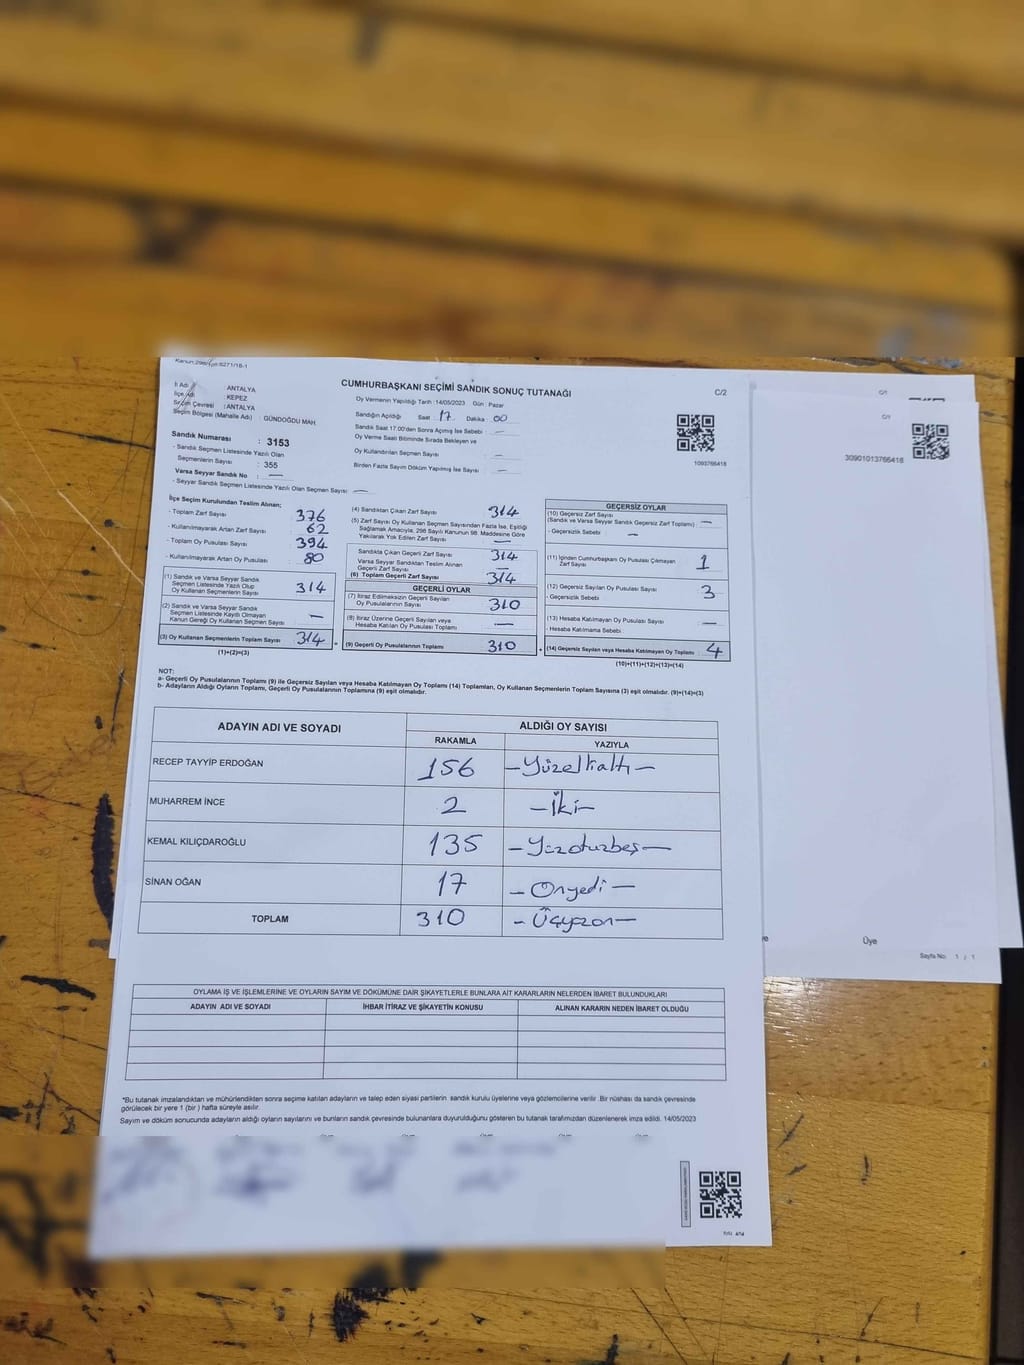 CUMHURBAŞKANI SEÇİMİ SANDIK SONUÇ TUTANAĞI
C/2
İl Adı : ANTALYA
İlçe Adı : KEPEZ
Seçim Çevresi : ANTALYA
Seçim Bölgesi (Mahalle Adı) : GÜNDOĞDU MAH.
Oy Vermenin Yapıldığı Tarih : 14/05/2023 Gün : Pazar
Sandığın Açıldığı Saat : 17 Dakika : 00
Sandık Saat 17.00'den Sonra Açılmış İse Sebebi : —
Oy Verme Saati Bitiminde Sırada Bekleyen ve
Oy Kullandırılan Seçmen Sayısı : —
Birden Fazla Sayım Döküm Yapılmış İse Sayısı : —
1093766418
Sandık Numarası : 3153
- Sandık Seçmen Listesinde Yazılı Olan
Seçmenlerin Sayısı : 355
Varsa Seyyar Sandık No : —
- Seyyar Sandık Seçmen Listesinde Yazılı Olan Seçmen Sayısı : —
İlçe Seçim Kurulundan Teslim Alınan;
- Toplam Zarf Sayısı : 376
- Kullanılmayarak Artan Zarf Sayısı : 62
- Toplam Oy Pusulası Sayısı : 394
- Kullanılmayarak Artan Oy Pusulası : 80
(1) Sandık ve Varsa Seyyar Sandık
Seçmen Listesinde Yazılı Olup
Oy Kullanan Seçmenlerin Sayısı : 314
(2) Sandık ve Varsa Seyyar Sandık
Seçmen Listesinde Kayıtlı Olmayan
Kanun Gereği Oy Kullanan Seçmen Sayısı : —
(3) Oy Kullanan Seçmenlerin Toplam Sayısı : 314
(1)+(2)=(3)
(4) Sandıktan Çıkan Zarf Sayısı : 314
(5) Zarf Sayısı Oy Kullanan Seçmen Sayısından Fazla İse, Eşitliği
Sağlamak Amacıyla, 298 Sayılı Kanunun 98. Maddesine Göre
Yakılarak Yok Edilen Zarf Sayısı : —
Sandıkta Çıkan Geçerli Zarf Sayısı : 314
Varsa Seyyar Sandıktan Teslim Alınan
Geçerli Zarf Sayısı : —
(6) Toplam Geçerli Zarf Sayısı : 314
GEÇERLİ OYLAR
(7) İtiraz Edilmeksizin Geçerli Sayılan
Oy Pusulalarının Sayısı : 310
(8) İtiraz Üzerine Geçerli Sayılan veya
Hesaba Katılan Oy Pusulası Toplamı : —
(9) Geçerli Oy Pusulalarının Toplamı : 310
GEÇERSİZ OYLAR
(10) Geçersiz Zarf Sayısı
(Sandık ve Varsa Seyyar Sandık Geçersiz Zarf Toplamı) : —
- Geçersizlik Sebebi : —
(11) İçinden Cumhurbaşkanı Oy Pusulası Çıkmayan
Zarf Sayısı : 1
(12) Geçersiz Sayılan Oy Pusulası Sayısı : 3
- Geçersizlik Sebebi :
(13) Hesaba Katılmayan Oy Pusulası Sayısı : —
- Hesaba Katılmama Sebebi :
(14) Geçersiz Sayılan veya Hesaba Katılmayan Oy Toplamı : 4
(10)+(11)+(12)+(13)=(14)
NOT:
a- Geçerli Oy Pusulalarının Toplamı (9) ile Geçersiz Sayılan veya Hesaba Katılmayan Oy Toplamı (14) Toplamları, Oy Kullanan Seçmenlerin Toplam Sayısına (3) eşit olmalıdır. (9)+(14)=(3)
b- Adayların Aldığı Oyların Toplamı, Geçerli Oy Pusulalarının Toplamına (9) eşit olmalıdır.
ADAYIN ADI VE SOYADI
ALDIĞI OY SAYISI
RAKAMLA YAZIYLA
RECEP TAYYİP ERDOĞAN 156 — Yüzellialtı —
MUHARREM İNCE 2 — İki —
KEMAL KILIÇDAROĞLU 135 — Yüzotuzbeş —
SİNAN OĞAN 17 — Onyedi —
TOPLAM 310 — Üçyüzon —
OYLAMA İŞ VE İŞLEMLERİNE VE OYLARIN SAYIM VE DÖKÜMÜNE DAİR ŞİKAYETLERLE BUNLARA AİT KARARLARIN NELERDEN İBARET BULUNDUKLARI
ADAYIN ADI VE SOYADI İHBAR İTİRAZ VE ŞİKAYETİN KONUSU ALINAN KARARIN NEDEN İBARET OLDUĞU
*Bu tutanak imzalandıktan ve mühürlendikten sonra seçime katılan adayların ve talep eden siyasi partilerin sandık kurulu üyelerine veya gözlemcilerine verilir. Bir nüshası da sandık çevresinde
görülecek bir yere 1 (bir) hafta süreyle asılır.
Sayım ve döküm sonucunda adayların aldığı oyların sayılarını ve bunların sandık çevresinde bulunanlara duyurulduğunu gösteren bu tutanak tarafımızdan düzenlenerek imza edildi. 14/05/2023
30901013766418
Üye
Sayfa No: 1 / 1